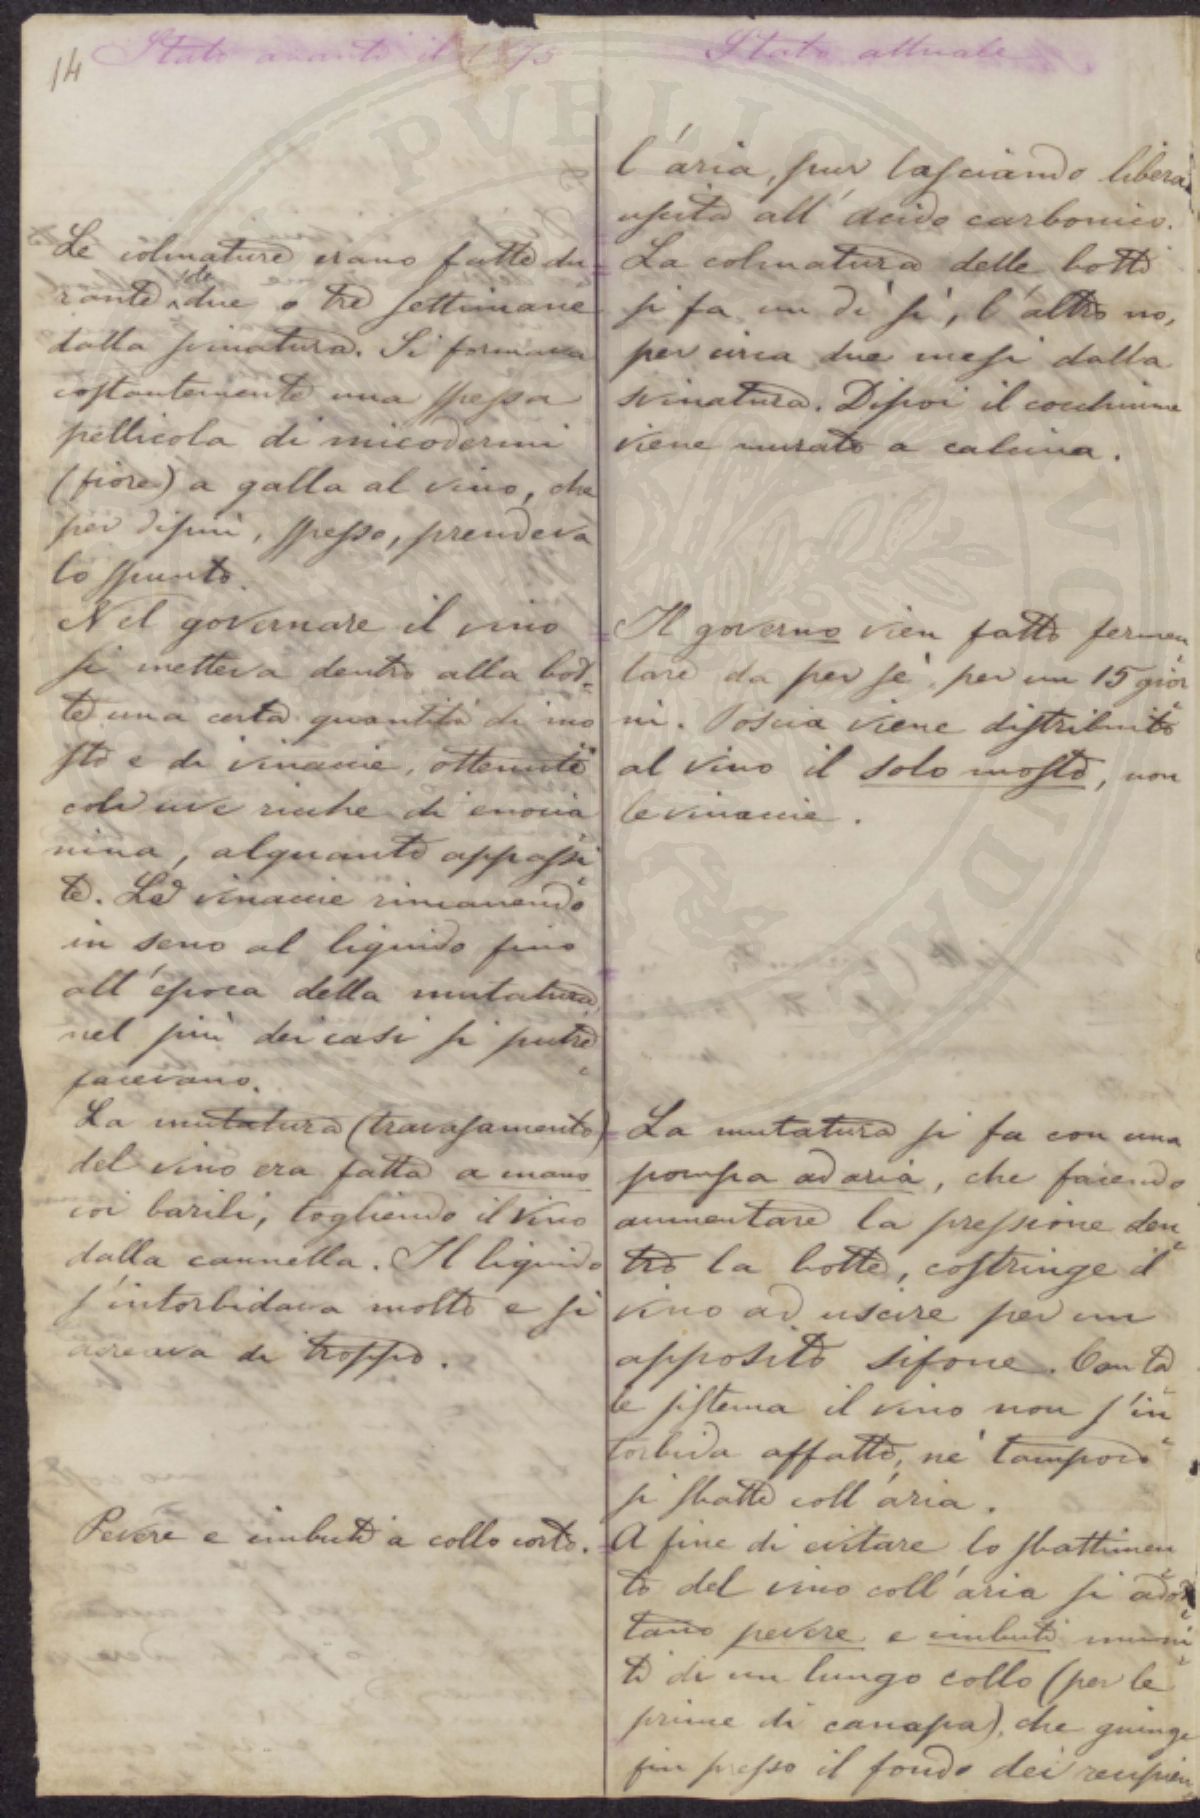 14
Stato avanti il 1875
Le colmature erano fatte du
rante le due o tre settimane
dalla svinatura. Si formava
costantemente una spessa
pellicola di micodermi
(fiore) a galla al vino, che
per dipiù, spesso, prendeva
lo spunto.
Nel governare il vino
si metteva dentro alla bot-
te una certa quantità di mo
sto e di vinaccie, ottenute
con uve ricche di enocia
nina, alquanto appassi
te. Le vinaccie rimanendo
in seno al liquido fino
all'época della mutatura,
nel più dei casi si putre
facevano.
La mutatura (travasamento)
del vino era fatta a mano
coi barili, togliendo il vino
dalla cannella. Il liquido
s'intorbidava molto e si
aereava di troppo.
Pevere e imbuti a collo corto.
Stato attuale
l'aria, pur lasciando libera
uscita all'acido carbonico.
La colmatura delle botti
si fa un dì sì, l'altro no,
per circa due mesi dalla
svinatura. Dipoi il cocchiume
viene murato a calcina.
Il governo vien fatto fermen
tare da per sè, per un 15 gior
ni. Poscia viene distribuito
al vino il solo mosto, non
le vinaccie.
La mutatura si fa con una
pompa ad aria, che facendo
aumentare la pressione den
tro la botte, costringe il
vino ad uscire per un
apposito sifone. Con ta
le sistema il vino non s'in
torbida affatto, nè tampoco
si sbatte coll'aria.
A fine di evitare lo sbattimen
to del vino coll'aria si adot
tano pevere e imbuti muni
ti di un lungo collo (per le
prime di canapa), che giunge
fin presso il fondo dei recipien